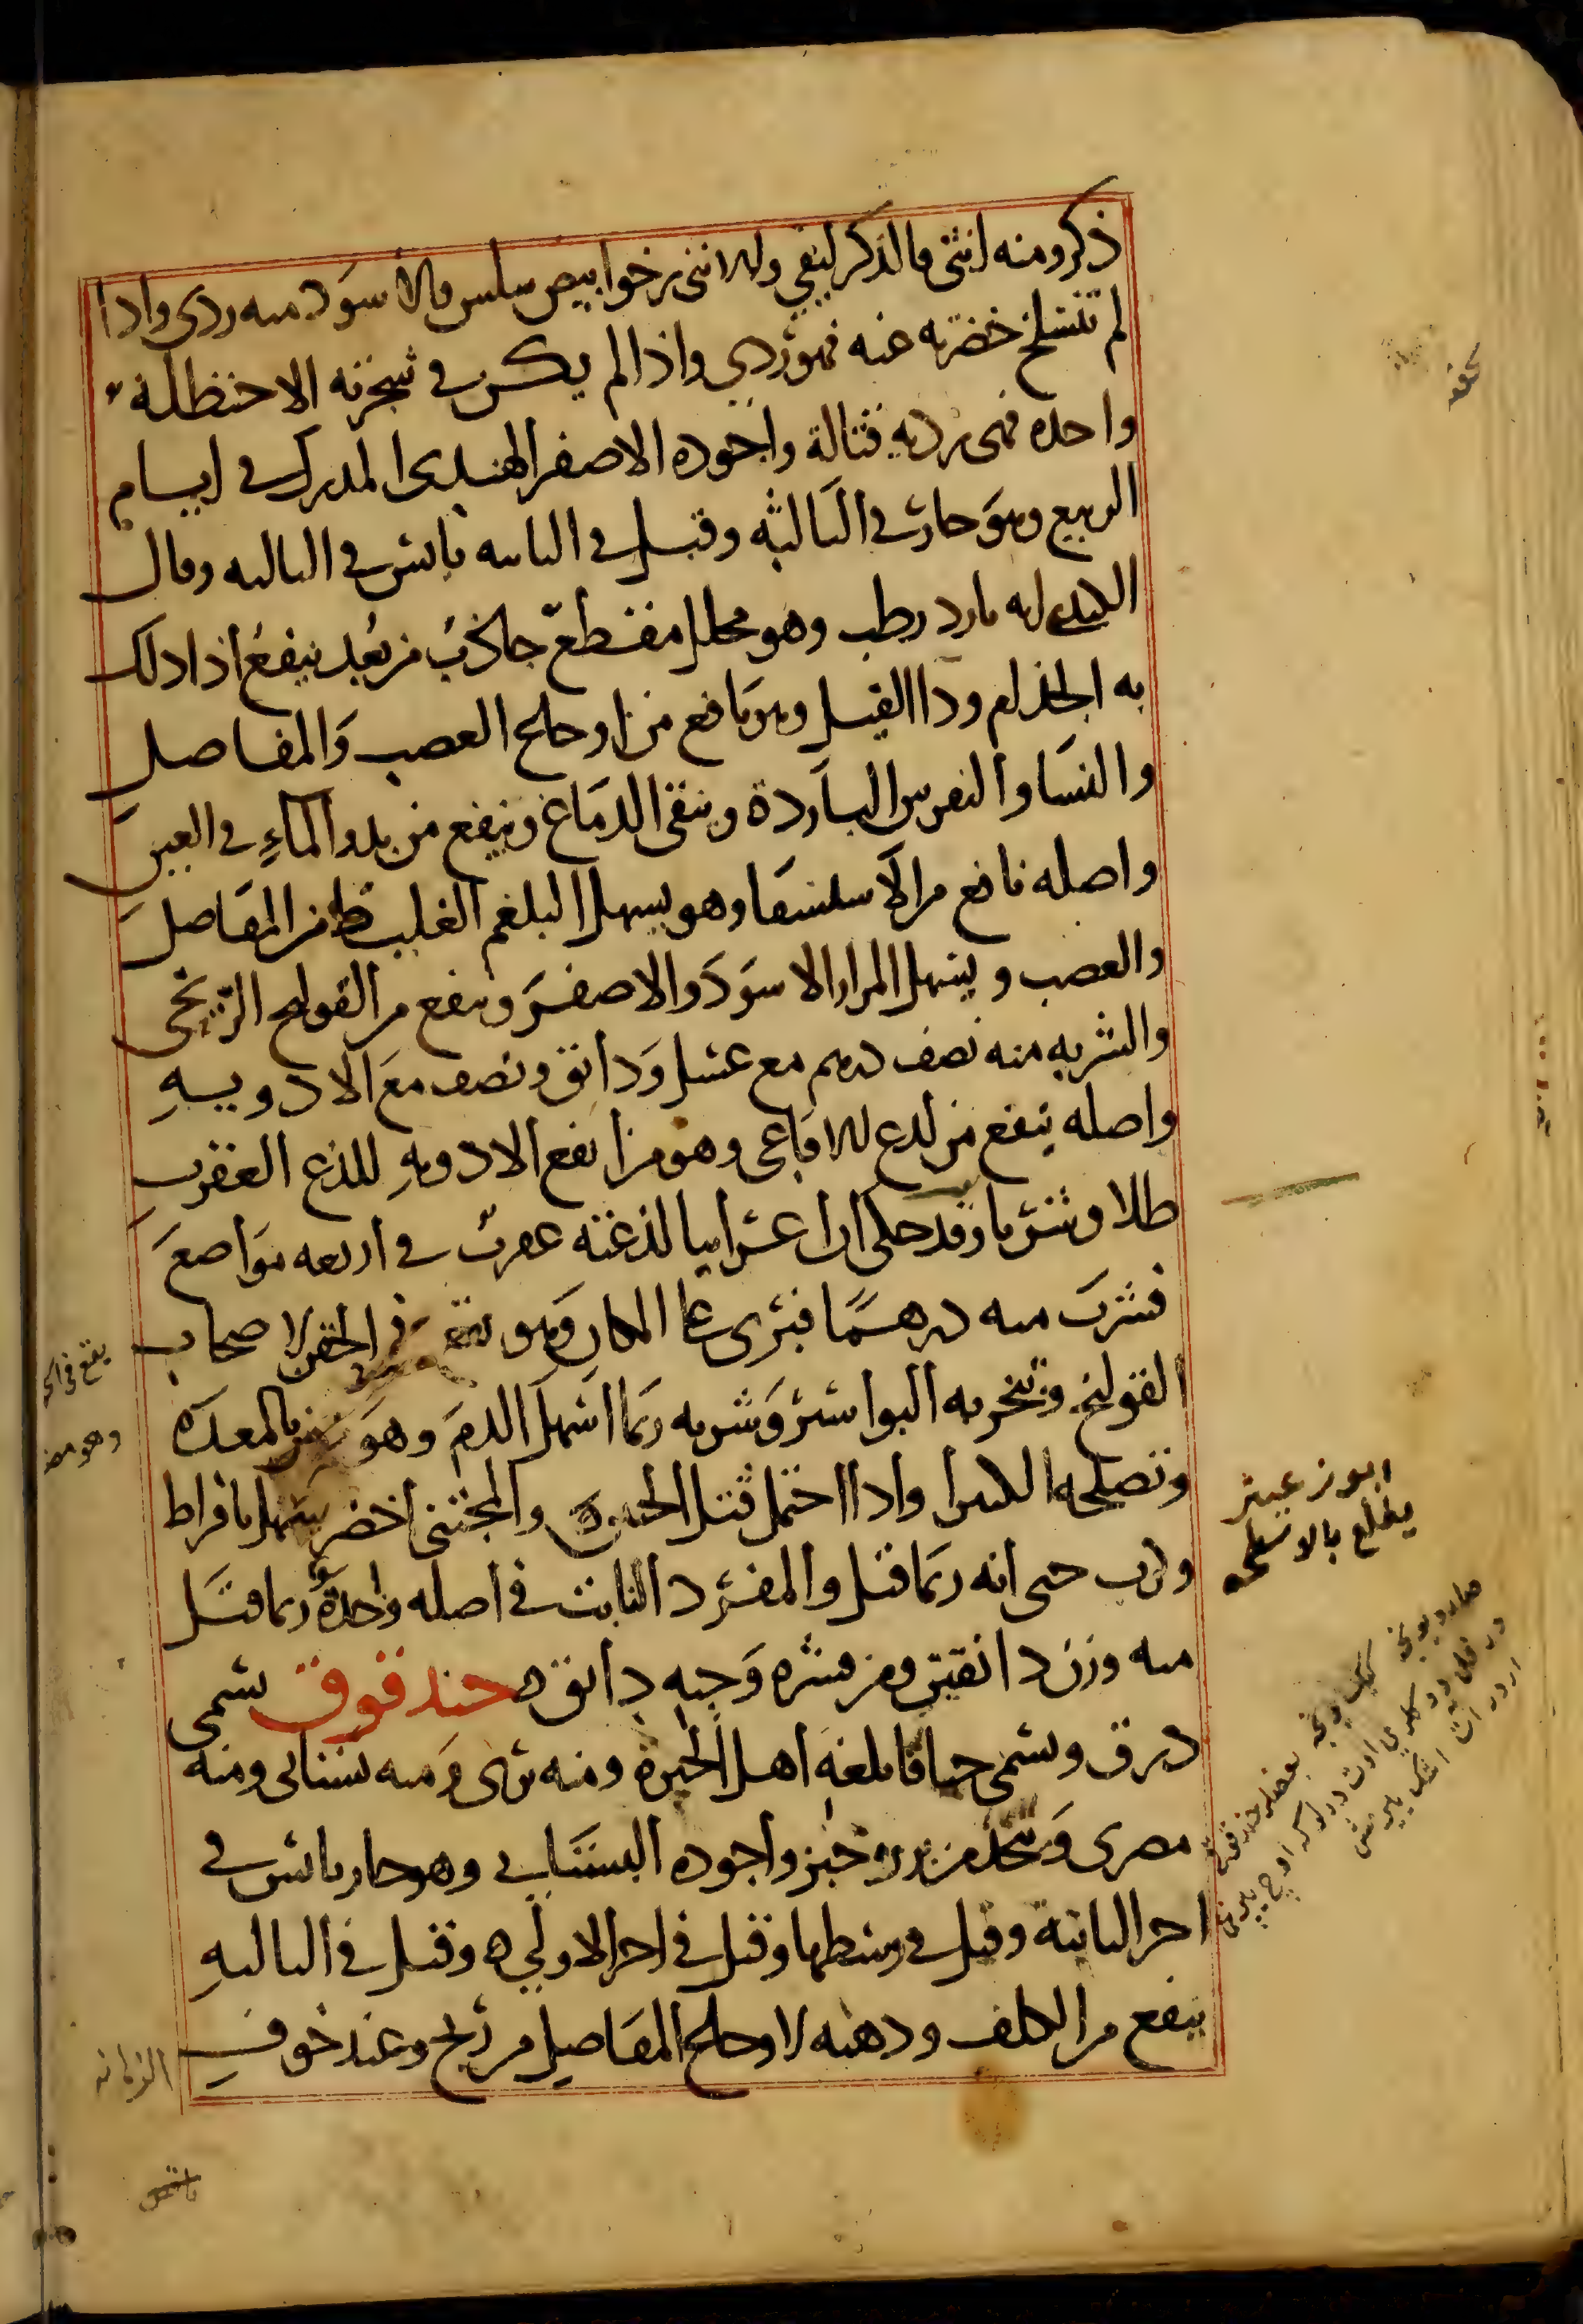 ذكر ومنه انثى فالذكر ليفي والانثى رخو ابيض سلس فالاسود منه ردى واذا
لم تنسلخ خضرته عنه فهو ردي واذا لم يكن في شجرته الا حنظلة
واحده فهى رديه قتالة واجوده الاصفر الهندى المدرك في ايام
الربيع وهو حار في الثالثه وقيل في الثانيه يابس في الثالثه وقال
الكندى انه بارد رطب وهو محلل مقطع جاذب من بعد ينفع اذا دلك
به الجذام ودا الفيل وهو نافع من اوجاع العصب والمفاصل
والنسا والنقرس الباردة وينقى الدماغ وينفع من بدو الماء في العين
واصله نافع من الاستسقا وهو يسهل البلغم الغليظ من المفاصل
والعصب ويسهل المرار الاسود والاصفر وينفع من القولنج الريحى
والشربه منه نصف درهم مع عسل ودانق ونصف مع الادويه
واصله ينفع من لدغ الافاعى وهو من انفع الادويه للذع العقرب
طلا وشربا وقد حكى ان اعرابيا لذغته عقرب في اربعه مواضع
فشرب منه درهما فبرى على المكان وهو ينفع في الحقن لاصحاب
القولنج وتبخر به البواسير وشربه ربما اسهل الدم وهو يضر بالمعده
وتصلحه الكثيرا واذا احتمل قتل الجنين والمجتنى اخضر يسهل بافراط
وكرب حتى انه ربما قتل والمفرد النابت في اصله واحدة ربما قتل
منه وزن دانقين ومن قشره وحبه دانق ه حندقوق يسمى
ذرق ويسمى حباقا بلغه اهل الحيرة ومنه برى ومنه بستانى ومنه
مصرى ويتخذ من بزره خبز واجوده البستانى وهو حار يابس في
اخر الثانية وقيل في وسطها وقيل في اخر الاولى ه وقيل في الثالثه
ينفع من الكلف ودهنه لاوجاع المفاصل من ريح وعند خوف
الزمانه
ينفع فى الحقن
وهو يضر